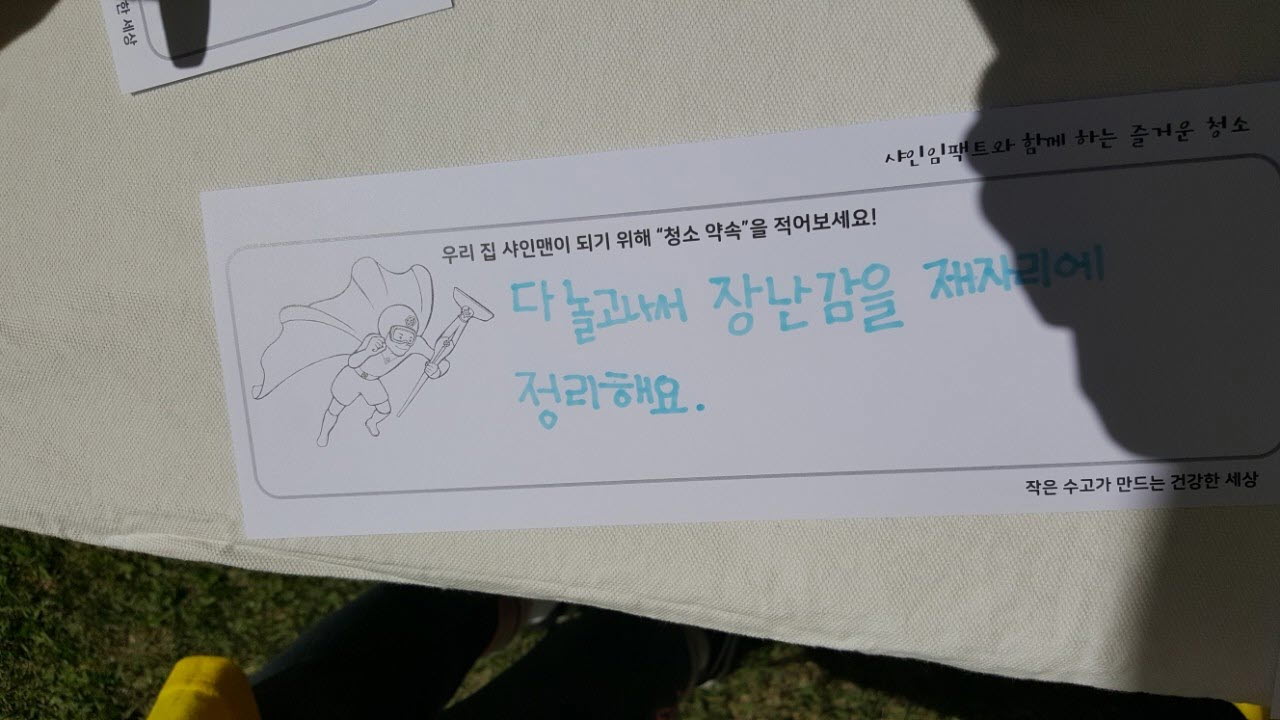 한 세상
샤인임팩트와 함께 하는 즐거운 청소
우리 집 샤인맨이 되기 위해 "청소 약속"을 적어보세요!
다 놀고나서 장난감을 제자리에
정리해요.
작은 수고가 만드는 건강한 세상